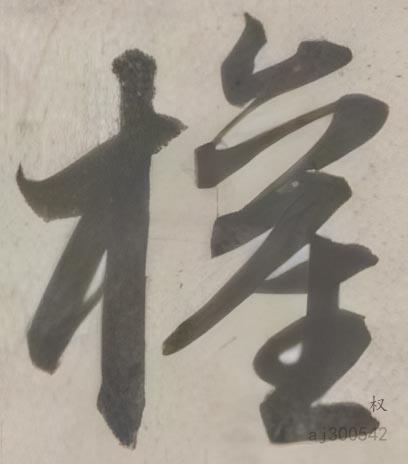 權
权
aj300542